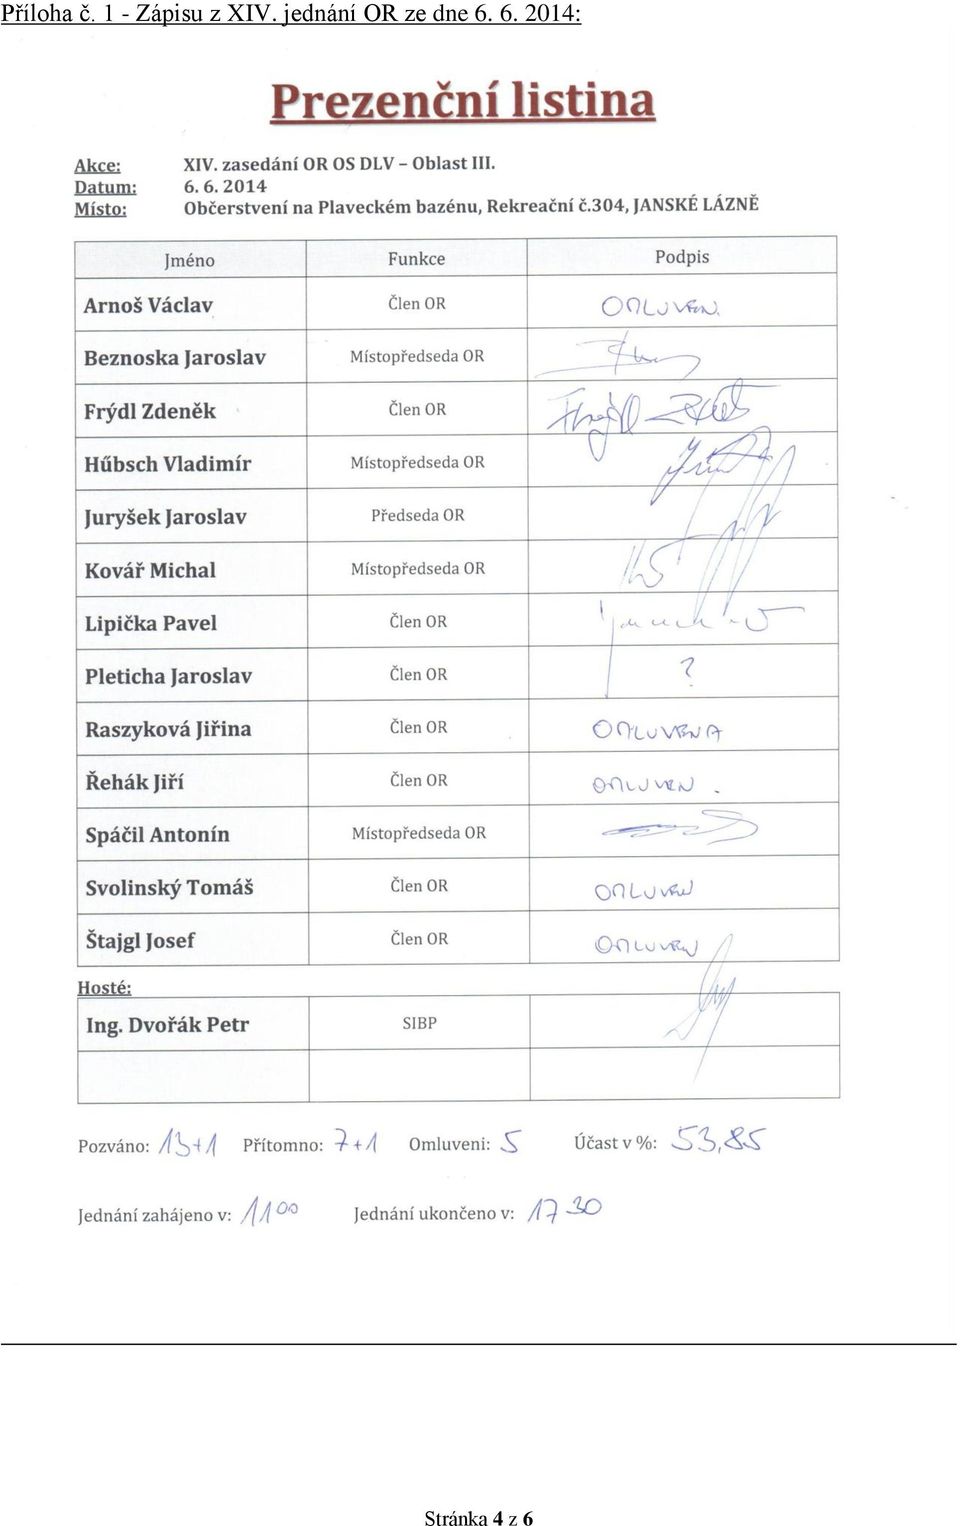 Příloha č. 1 - Zápisu z XIV. jednání OR ze dne 6. 6. 2014:
Prezenční listina
Akce: XIV. zasedání OR OS DLV – Oblast III.
Datum: 6. 6. 2014
Místo: Občerstvení na Plaveckém bazénu, Rekreační č.304, JANSKÉ LÁZNĚ
Jméno Funkce Podpis
Arnoš Václav Člen OR OMLUVEN.
Beznoska Jaroslav Místopředseda OR
Frýdl Zdeněk Člen OR Frýdl Zdeněk
Hűbsch Vladimír Místopředseda OR
Juryšek Jaroslav Předseda OR
Kovář Michal Místopředseda OR
Lipička Pavel Člen OR
Pleticha Jaroslav Člen OR ?
Raszyková Jiřina Člen OR OMLUVENA
Řehák Jiří Člen OR OMLUVEN.
Spáčil Antonín Místopředseda OR
Svolinský Tomáš Člen OR OMLUVEN
Štajgl Josef Člen OR OMLUVEN
Hosté:
Ing. Dvořák Petr SIBP
Pozváno: 13+1 Přítomno: 7+1 Omluveni: 5 Účast v %: 53,85
Jednání zahájeno v: 11 00 Jednání ukončeno v: 17 30
Stránka 4 z 6